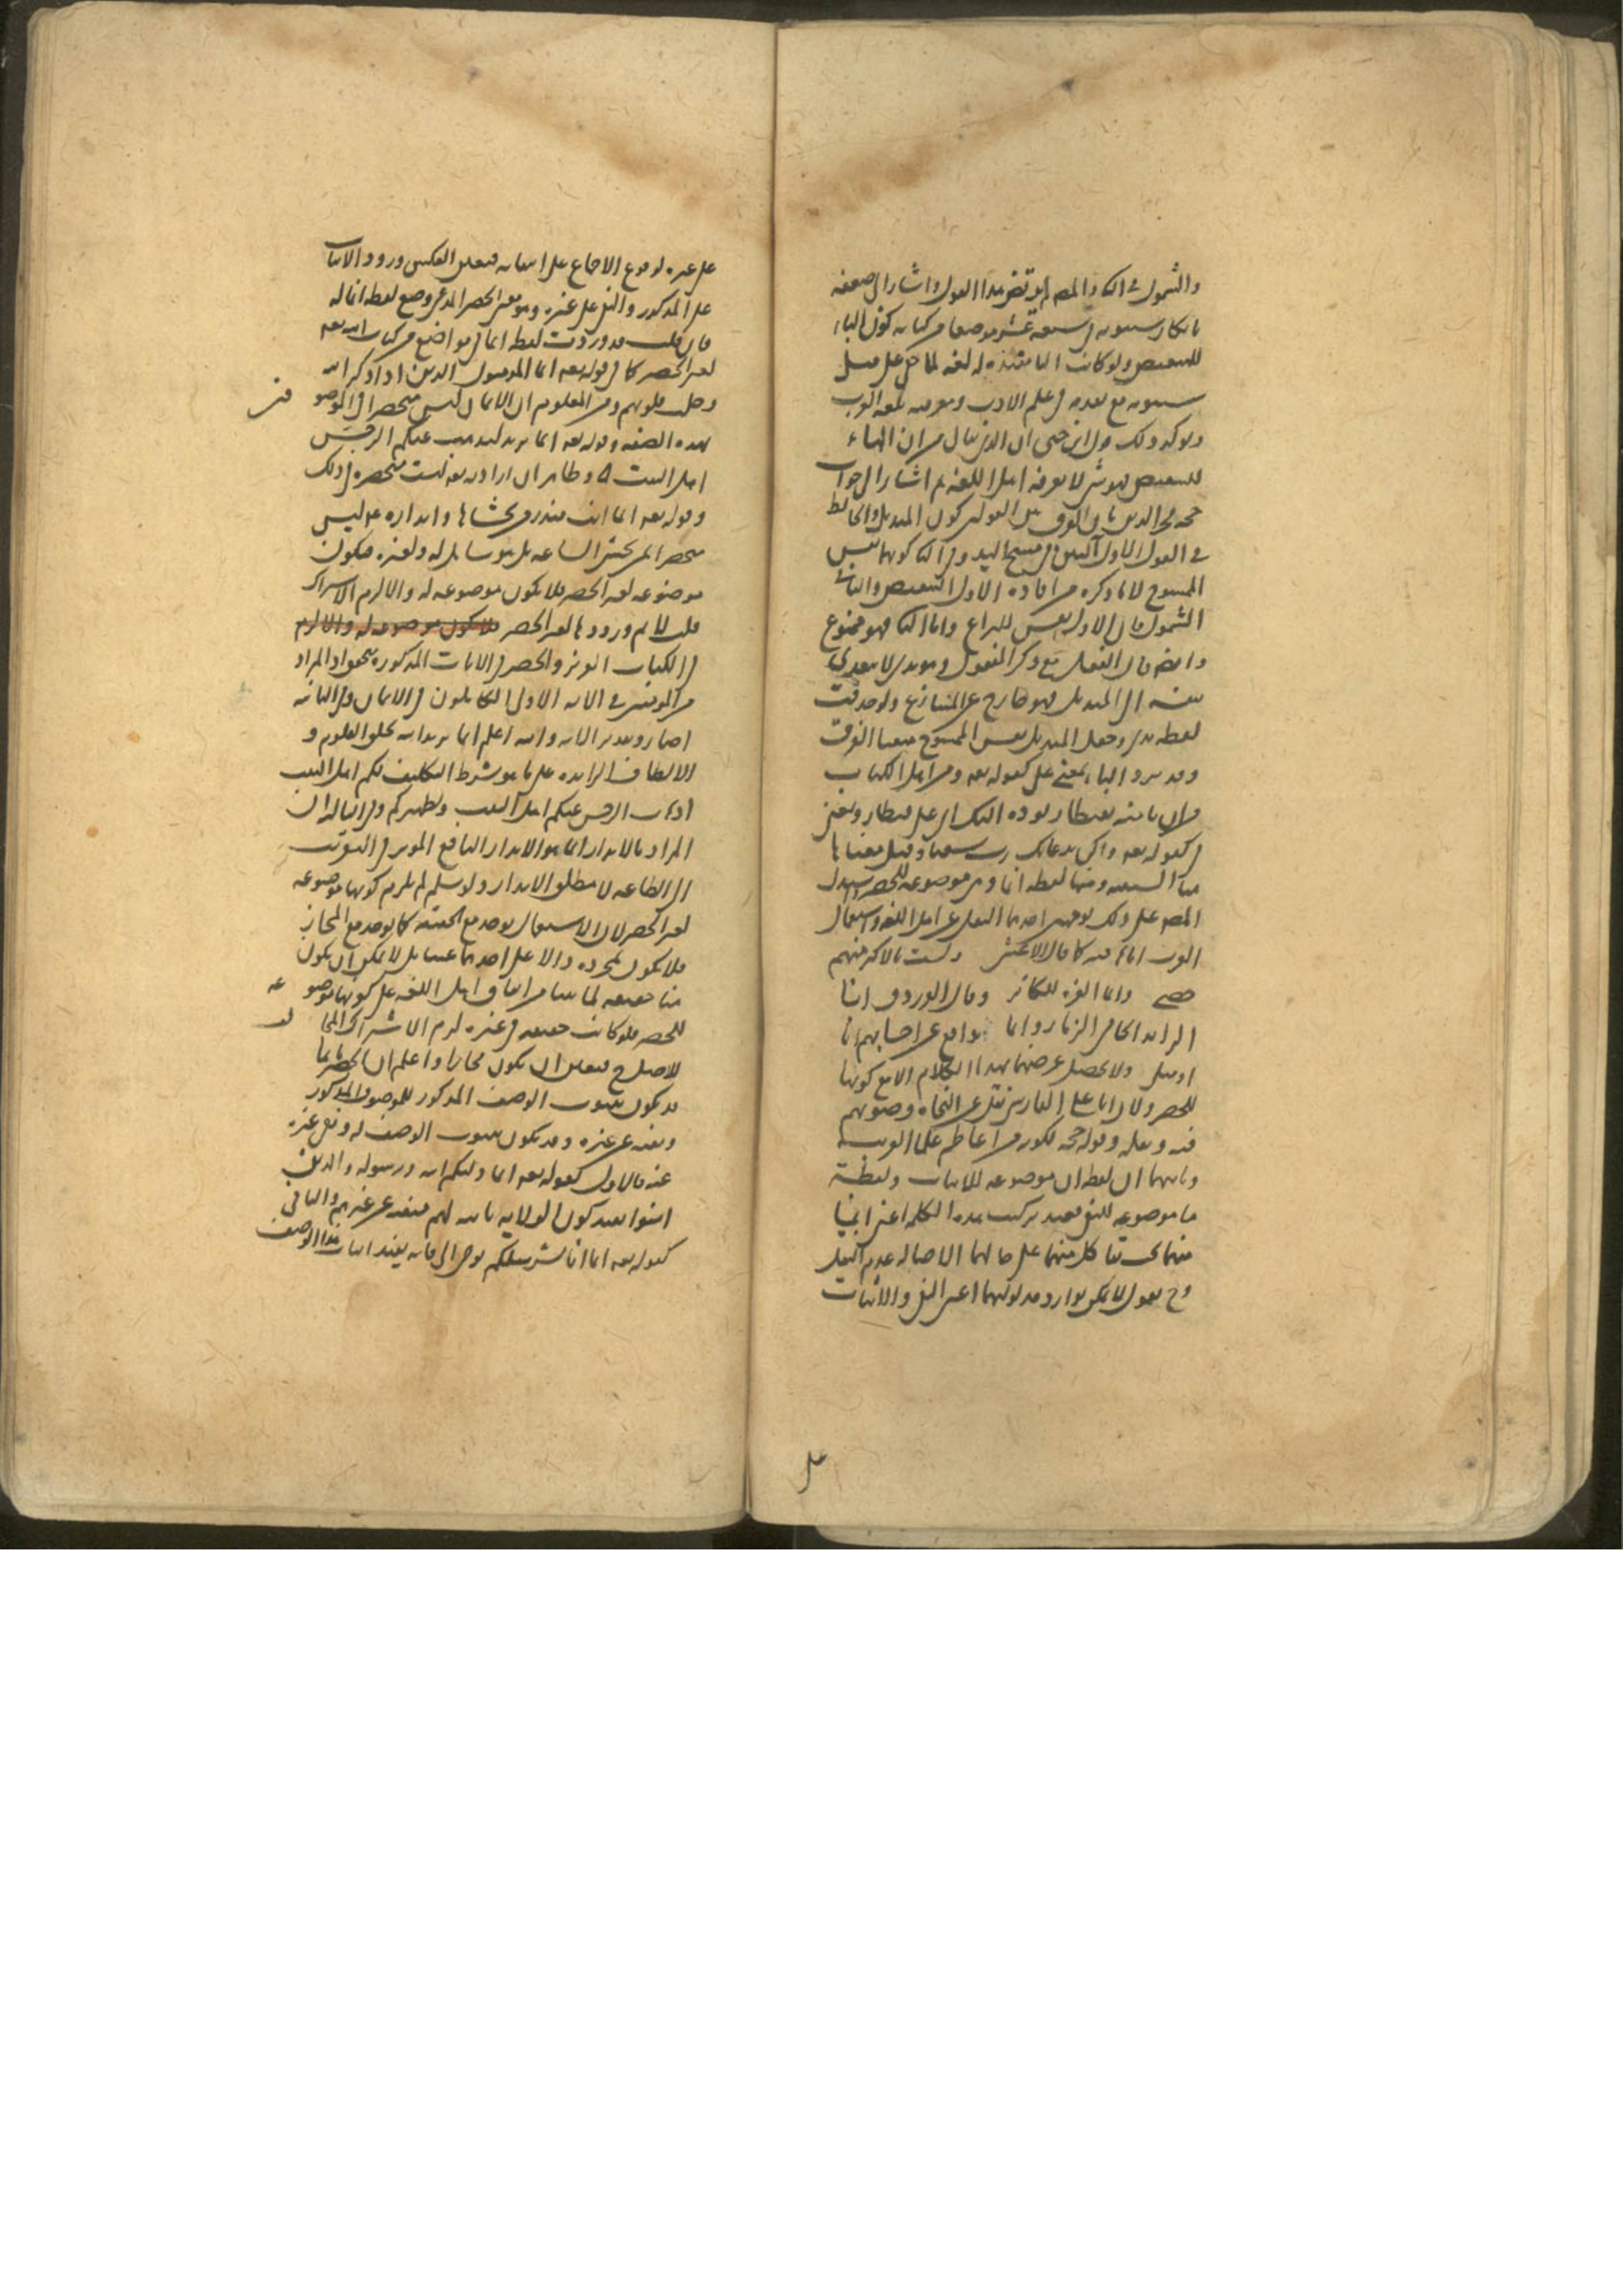 والشمول في الثاني والمصـ لم يرتض هذا القول واشار الى ضعفه
بانكار سيبويه في سبعة عشر موضعا من كتابه كون الباء
للتبعيض ولو كانت الباء مفيدة له لغة لما خفي على مثل
سيبويه مع تقدمه في علم الادب ومعرفته بلغة العرب
ويؤكد ذلك قول ابن جنى ان الذى يقال من ان الباء
للتبعيض فهو شى لا يعرفه اهل اللغة ثم اشار الى جواب
حجة فخر الدين بان الفرق بين القولين كون المنديل والحائط
في القول الاول آلتين في مسح اليد وفى الثانى كونهما نفس
الممسوح لا ما ذكره من افادة الاول التبعيض والثانى
الشمول فان الاول نفس النزاع واما الثانى فهو ممنوع
وايضا فان الفعل مع ذكر المفعول وهو يدى لا يتعدى
بنفسه الى المنديل فهو خارج عن المتنازع ولو حذفت
لفظة يدى وجعل المنديل نفس الممسوح منعنا الفرق
وقد ترد الباء بمعنى على كقوله تعه ومن اهل الكتاب
من ان تامنه بقنطار يؤده اليك اى على قنطار وبمعنى
فى كقوله تعه ولم اكن بدعائك رب شقيا وقيل معناها
هنا السببية ومنها لفظة انما وهى موضوعة للحصر استدل
المصـ على ذلك بوجهين احدهما النقل عن اهل اللغة واستعمال
العرب اياها فيه كما قال الاعشى ولست بالاكثر منهم
حصى وانما العزة للكاثر وقال الفرزدق انا
الذائد الحامى الذمار وانما يدافع عن احسابهم انا
او مثلى ولا يحصل غرضهما بهذا الكلام الا مع كونها
للحصر ولان ابا على الفارسى نقل عن النحاة وصوبهم
فيه ونقله وقوله حجة لكونه من اعاظم علماء العربية
وثانيهما ان لفظة ان موضوعة للاثبات ولفظة
ما موضوعة للنفى فعند تركيب هذه الكلمة اعنى انما
منهما يجب بقا كل منهما على حالهما لاصالة عدم النقل
وح نقول لا يمكن توارد مدلوليهما اعنى النفى والاثبات
على
على غيره لوقوع الاجماع على انتفائه فتعين العكس وورود الاثبات
على المذكور والنفى على غيره وهو معنى الحصر المدعى وضع لفظة انما له
فان قلت قد وردت لفظة انما فى مواضع من كتاب الله تعه
لغير الحصر كما فى قوله تعه انما المؤمنون الذين اذا ذكر الله
وجلت قلوبهم ومن المعلوم ان الايمان ليس منحصرا فى الموصو
فين
بهذه الصفة وقوله تعه انما يريد الله ليذهب عنكم الرجس
اهل البيت وظاهر ان ارادته تعه ليست منحصرة فى ذلك
وقوله تعه انما انت منذر من يخشاها وانذاره ع م ليس
منحصرا لمن يخشى الساعة بل هو شامل له ولغيره فتكون
موضوعة لغير الحصر فلا تكون موضوعة له والا لزم الاشتراك
قلت لا نم ورودها لغير الحصر فلا تكون موضوعة له والا لزم
فى الكتاب العزيز والحصر فى الايات المذكورة متحقق اذ المراد
من المؤمنين في الاية الاولى الكاملون فى الايمان وفى الثانية
اضمار وتقدير الاية والله اعلم انما يريد الله بخلق العلوم و
الالطاف الزايدة على ما هو شرط التكليف لكم اهل البيت
اذهاب الرجس عنكم اهل البيت وتطهيركم وفى الثالثة ان
المراد بالانذار انما هو الانذار النافع المؤثر فى التقريب
الى الطاعة لا مطلق الانذار ولو سلم لم يلزم كونها موضوعة
لغير الحصر لان الاستعمال يوجد مع الحقيقة كما يوجد مع المجاز
فلا يكون بمجرده دالا على احدهما عينا بل لا يمكن ان يكون
هنا حقيقة لما بينا من اتفاق اهل اللغة على كونها موضو
عة
للحصر فلو كانت حقيقة فى غيره لزم الاشتراك المخا
لف
للاصل ح فتعين ان يكون مجازا واعلم ان الحصر بانما
قد يكون بثبوت الوصف المذكور للموصوف المذكور
ونفيه عن غيره وقد يكون بثبوت الوصف له ونفى غيره
عنه فالاول كقوله تعه انما وليكم الله ورسوله والذين
امنوا يفيد كون الولاية ثابتة لهم منفية عن غيرهم والثانى
كقوله تعه انما انا بشر مثلكم يوحى الى فانه يفيد اثبات هذا الوصف